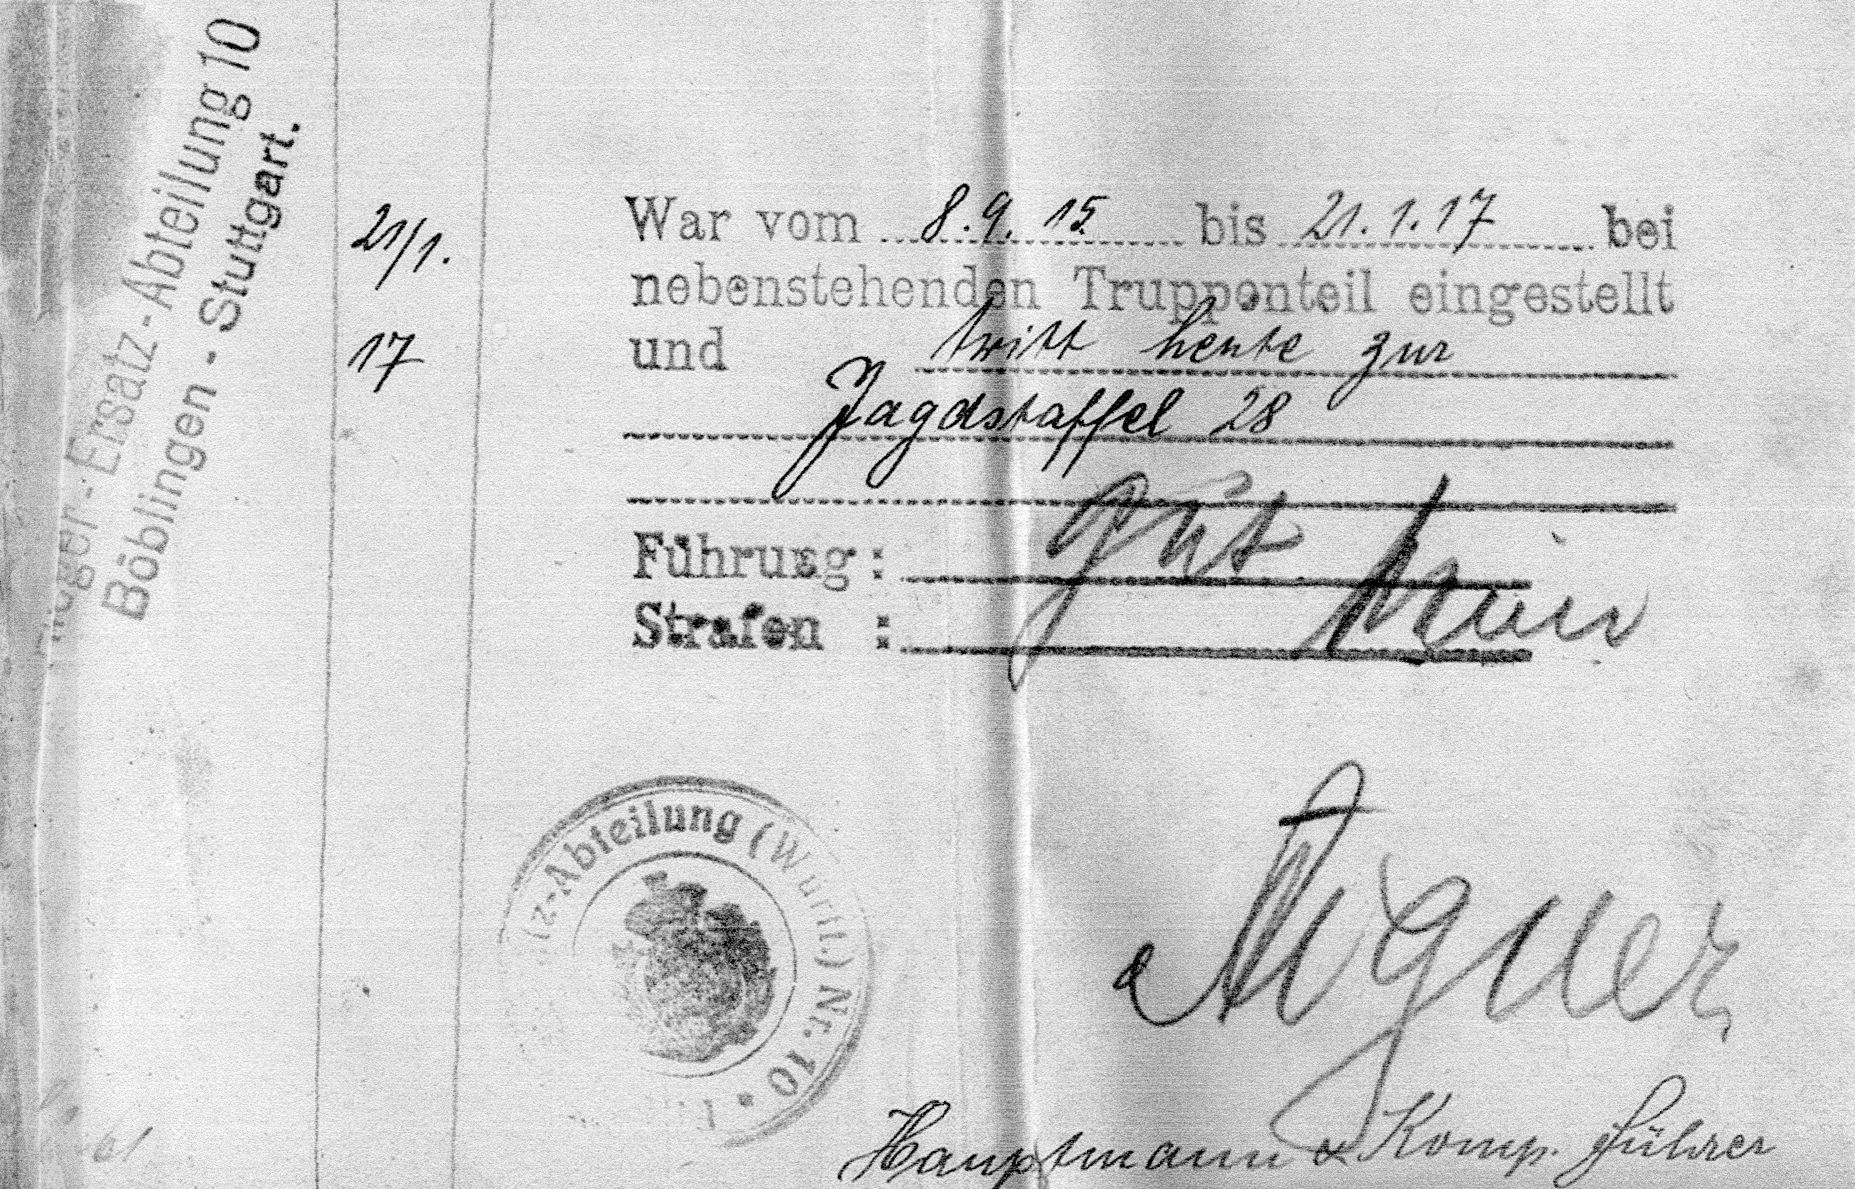 Flieger-Ersatz-Abteilung 10
Böblingen - Stuttgart.
21/1.
17
War vom 8.9.15 bis 21.1.17 bei
nebenstehenden Truppenteil eingestellt
und tritt heute zur
Jagdstaffel 28
Führung: gut
Strafen :
tz-Abteilung (Württ.) Nr. 10
Aigner
Hauptmann & Komp. Führer